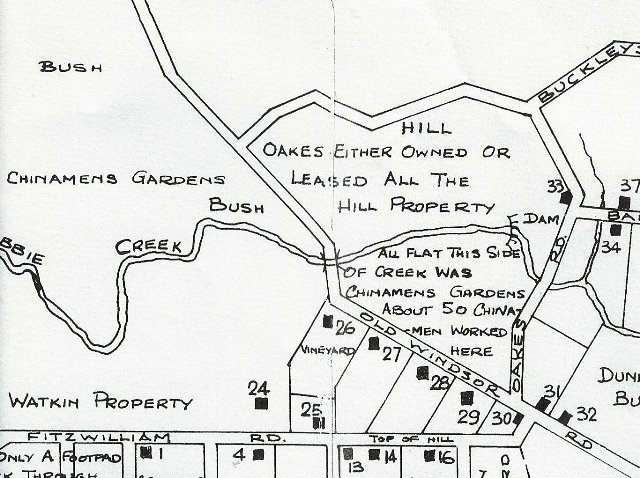 BUCKLEYS
BUSH
HILL
OAKES EITHER OWNED OR
LEASED ALL THE
HILL PROPERTY
CHINAMENS GARDENS
BUSH
33
37
DAM
BA
34
BBIE
CREEK
RD.
ALL FLAT THIS SIDE
OF CREEK WAS
CHINAMENS GARDENS
ABOUT 50 CHINA-
-MEN WORKED
HERE
OAKES
26
OLD WINDSOR
RD
VINEYARD
27
28
29
30
31
32
DUN
BU
24
WATKIN PROPERTY
25
FITZWILLIAM
RD.
TOP OF HILL
ONLY A FOOTPAD
CK THROUGH
1
4
13
14
16
RD